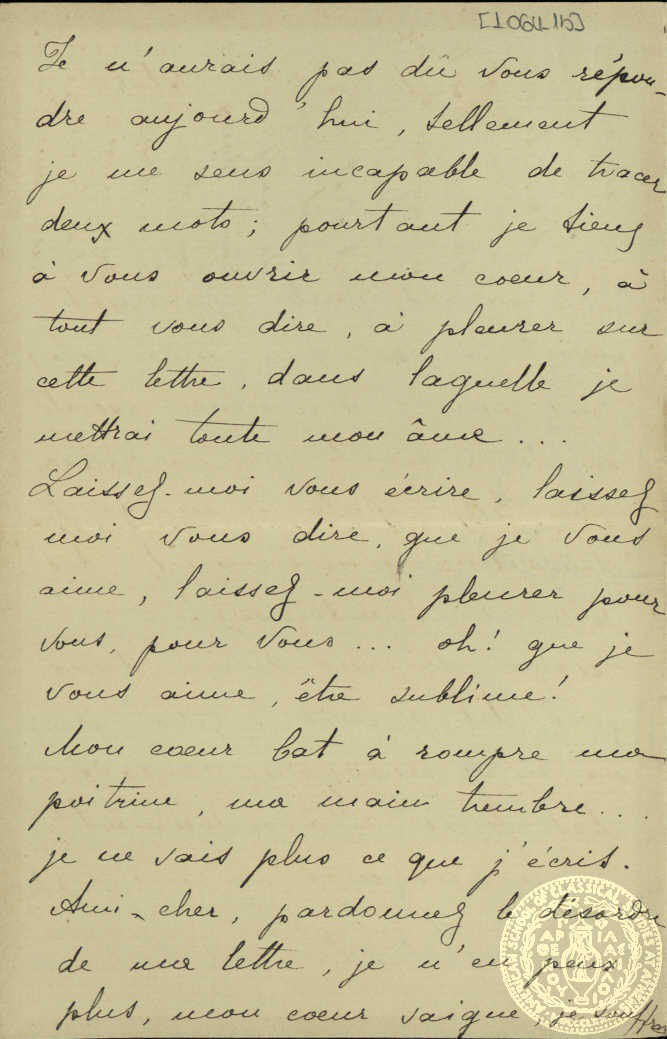 [1064 15]
Je n'aurais pas dû vous répon-
dre aujourd'hui, tellement
je me sens incapable de tracer
deux mots; pourtant je tiens
à vous ouvrir mon coeur, à
tout vous dire, à pleurer sur
cette lettre, dans laquelle je
mettrai toute mon âme...
Laissez-moi vous écrire, laissez
moi vous dire, que je vous
aime, laissez-moi pleurer pour
vous, pour vous... oh! que je
vous aime, être sublime!
Mon coeur bat à rompre ma
poitrine, ma main tremble...
je ne sais plus ce que j'écris.
Ami-cher, pardonnez le désordre
de ma lettre, je n'en peux
plus, mon coeur saigne, je souffre
AMERICAN SCHOOL OF CLASSICAL STUDIES AT ATHENS